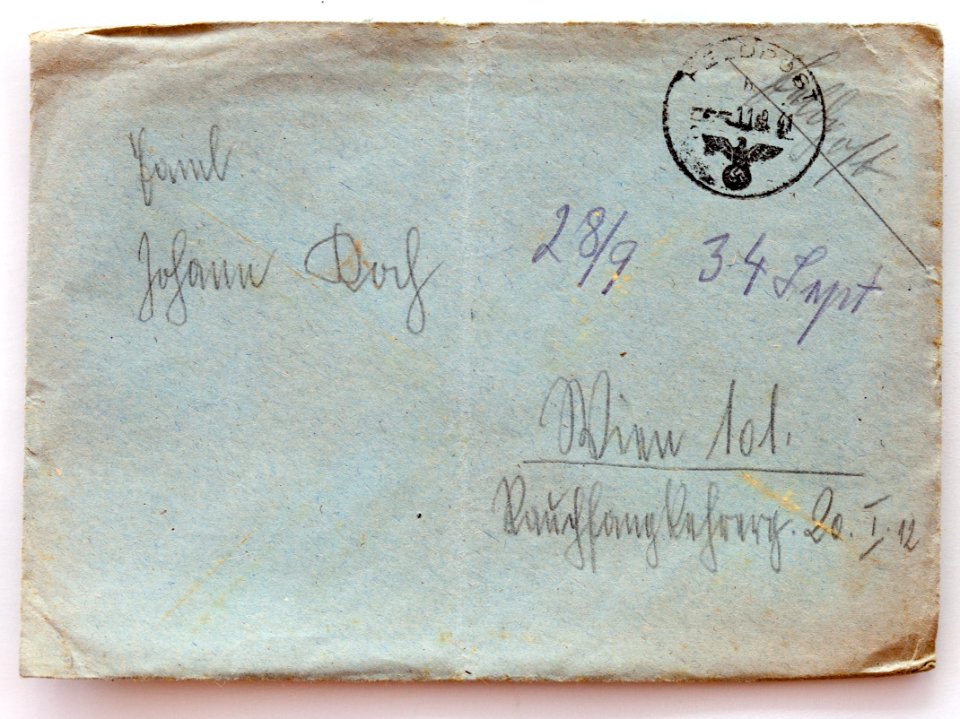 FELDPOST
11.9.41
Feldpost
Faml.
Johann Doch
28/9 3 4 Sept
Wien 101.
Rauchfangkehrerg. 20. I. 12